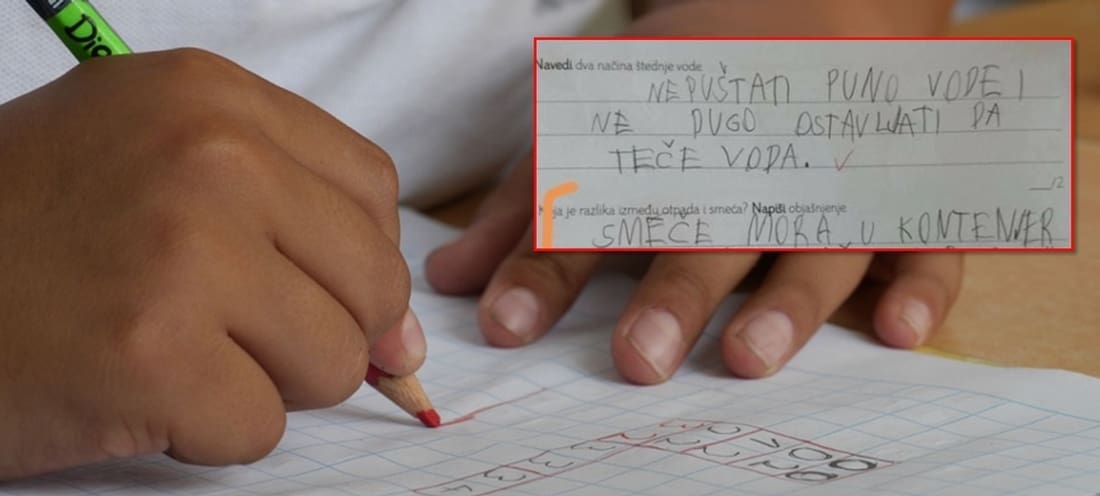 Dio
Navedi dva načina štednje vode
NE PUŠTATI PUNO VODE I
NE DUGO OSTAVLJATI DA
TEČE VODA. ✓
__/2
je razlika između otpada i smeća? Napiši objašnjenje
SMEČE MORA U KONTENJER